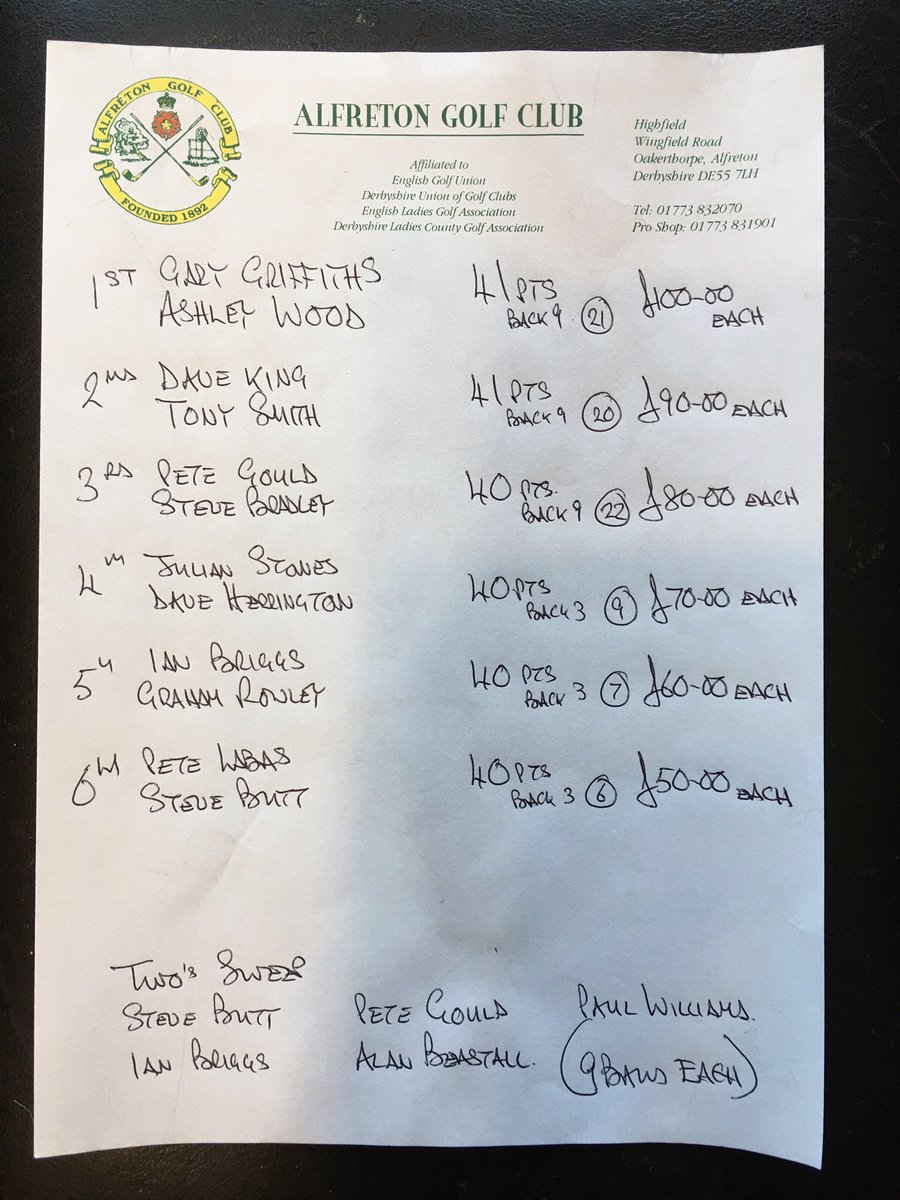 ALFRETON GOLF CLUB
FOUNDED 1892
ALFRETON GOLF CLUB
Affiliated to
English Golf Union
Derbyshire Union of Golf Clubs
English Ladies Golf Association
Derbyshire Ladies County Golf Association
Highfield
Wingfield Road
Oakerthorpe, Alfreton
Derbyshire DE55 7LH
Tel: 01773 832070
Pro Shop: 01773 831901
1ST GARY GRIFFITHS 41 PTS £100-00
ASHLEY WOOD BACK 9 21 EACH
2ND DAVE KING 41 PTS £90-00 EACH
TONY SMITH BACK 9 20
3RD PETE GOULD 40 PTS. £80-00 EACH
STEVE BRADLEY BACK 9 22
4TH JULIAN STONES 40 PTS £70-00 EACH
DAVE HERRINGTON BACK 3 9
5TH IAN BRIGGS 40 PTS £60-00 EACH
GRAHAM ROWLEY BACK 3 7
6TH PETE LABAS 40 PTS £50-00 EACH
STEVE BUTT BACK 3 6
TWO'S SWEEP
STEVE BUTT PETE GOULD PAUL WILLIAMS.
IAN BRIGGS ALAN BEASTALL. (9 BALLS EACH)